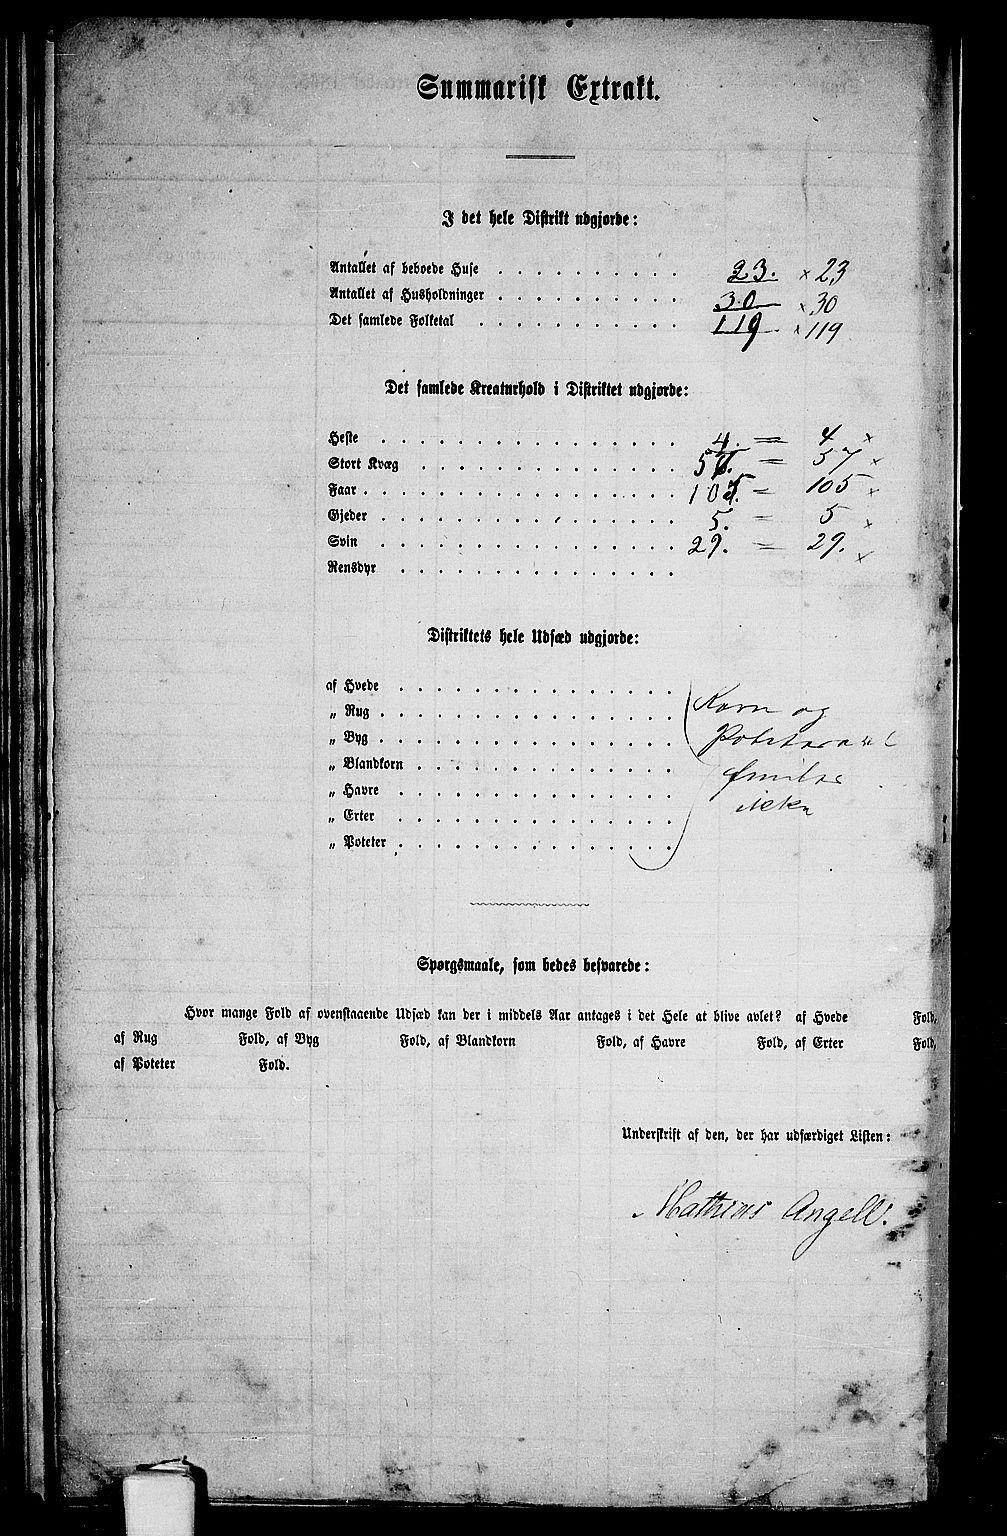 Summarisk Extrakt.
I det hele Distrikt udgjorde:
Antallet af beboede Huse . . . . . . . . . . 23. × 23
Antallet af Husholdninger . . . . . . . . . . 30 × 30
Det samlede Folketal . . . . . . . . . . . 119 × 119
Det samlede Kreaturhold i Distriktet udgjorde:
Heste . . . . . . . . . . . . . . . . 4. = 4 ×
Stort Kvæg . . . . . . . . . . . . . . 57. = 57 ×
Faar . . . . . . . . . . . . . . . . . 105. = 105 ×
Gjeder . . . . . . . . . . . . . . . . 5. = 5 ×
Svin . . . . . . . . . . . . . . . . 29. = 29. ×
Rensdyr . . . . . . . . . . . . . . .
Distriktets hele Udsæd udgjorde:
af Hvede . . . . . . . . . . . . . . .
„ Rug . . . . . . . . . . . . . . . . Korn og
„ Byg . . . . . . . . . . . . . . . .
„ Blandkorn . . . . . . . . . . . . . .
„ Havre . . . . . . . . . . . . . . .
„ Erter . . . . . . . . . . . . . . .
„ Poteter . . . . . . . . . . . . . . .
Spørgsmaale, som bedes besvarede:
Hvor mange Fold af ovenstaaende Udsæd kan der i middels Aar antages i det Hele at blive avlet? af Hvede Fold,
af Rug Fold, af Byg Fold, af Blandkorn Fold, af Havre Fold, af Erter Fold,
af Poteter Fold.
Underskrift af den, der har udfærdiget Listen:
Mathias Angell.